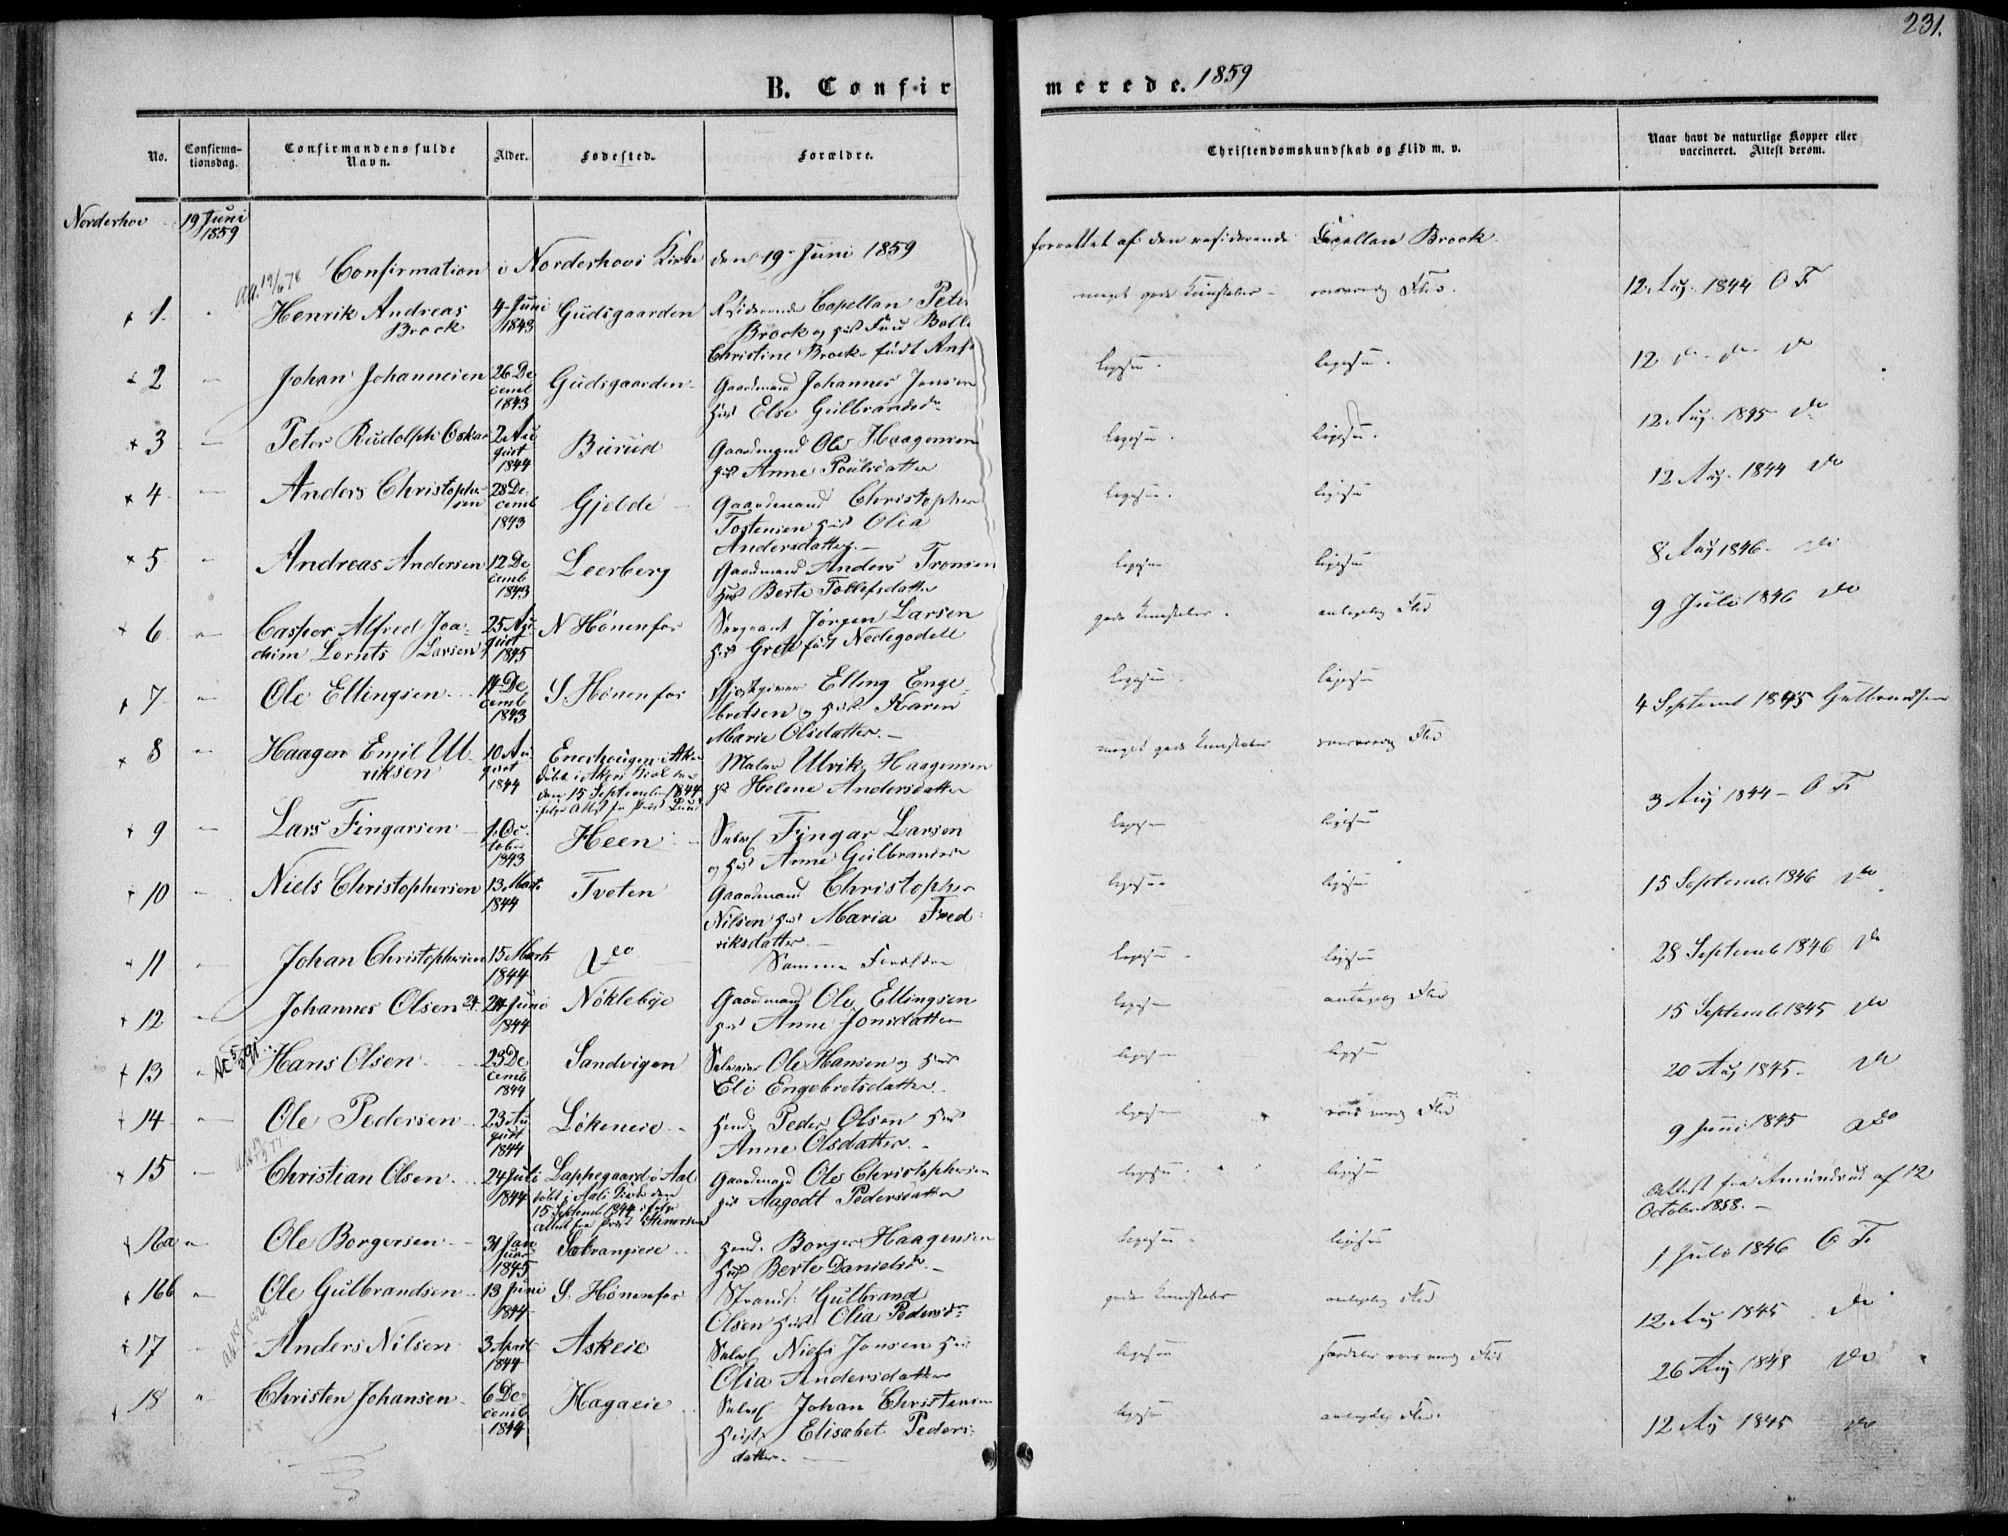 231.
B. Confirmerede. 1859
No.
Confirmationsdag.
Confirmandens fulde Navn.
Alder.
Fødested.
Forældre.
Christendomskundskab og Flid m. v.
Naar havt de naturlige Kopper eller vaccineret. Attest derom.
Norderhov 19 Juni 1859
Confirmation i Norderhovs Kirke den 19 Juni 1859 forrettet af den residerende Capellan Brock.
1. Henrik Andreas Brock 4 Juni 1843 Gudsgaarden Residerende Capellan Peter Brock og Hust Frue Christine Brock født meget gode Kundskaber roesværdig Flid. 12 Aug. 1844 O F
2 Johan Johannesen 26 Decemb 1843 Gudsgaarden Gaardmand Johannes Jensen Hust Else Gulbrandsdr ligesaa. ligesaa. 12 do do do
3 Peter Rudolph Oskar 2 August 1844 Burud Gaardmand Ole Haagensen Hust Anne Poulsdatter ligesaa. ligesaa. 12 Aug. 1845 do
4 Anders Christophersen 28 Decemb 1843 Gjelde Gaardmand Christopher Tostensen Hust Olia Andersdatter. ligesaa. ligesaa 12 Aug. 1844 do
5 Andreas Andersen 12 Decemb 1843 Leerberg Gaardmand Anders Tronsen Hust Berte Tollefsdatter ligesaa ligesaa 8 Aug 1846 do
6 Casper Alfred Joachim Lornts Larsen 25 August 1845 N Hønenfos Sergeant Jørgen Larsen Hust Grete født Nedegodell gode Kundskaber. antagelig Flid 9 Juli 1846 do
7 Ole Ellingsen 14 Decemb 1843 S. Hønenfos Gjestgiver Elling Engebretsen og Hust Karen Marie Olsdatter. ligesaa ligesaa 4 Septemb 1845 Gulbrandsen
8 Haagen Emil Ulriksen 10 August 1844 Enerhougen i Aker døbt i Akers Kirke den 15 September 1844 ifølge Attest fra Præst Lund Maler Ulrik Haagensen Hu Helene Andersdatter meget gode Kundskaber roesværdig Flid 3 Aug 1844 O F
9 Lars Fingarsen 1 October 1843 Heen Selvej Fingar Larsen og Hust Anne Gulbrandsdr ligesaa ligesaa 15 Septemb 1846 do
10 Niels Christophersen 13 Marts 1844 Tveten Gaardmand Christopher Nilsen Hust Maria Fredriksdatter. ligesaa ligesaa 28 Septemb 1846 do
11 Johan Christophersen 15 Marts 1844 do Samme Forældre ligesaa ligesaa
12 Johannes Olsen 24 Juni 1844 Nøklebye Gaardmand Ole Ellingsen Hust Anne Jonsdatter ligesaa antagelig Flid 15 Septemb 1845 do
13 Hans Olsen 23 Decemb 1844 Sandvigen Selveier Ole Hansen og Hust Eli Engebretsdatter. ligesaa ligesaa 20 Aug 1845 do
14 Ole Pedersen 23 August 1844 Løkeneie Huusd. Peder Olsen Hust Anne Olsdatter. ligesaa roesværdig Flid 9 Juni 1845 do
15 Christian Olsen 24 Juli 1844 Lappegaard i Aal døbt i Aals Kirke den 15 Septemb 1844 ifølge Attest fra Præst Stenersen Gaardmand Ole Christophersen Hust Aagodt Pedersdatter ligesaa. ligesaa Attest fra Amundrud af 12 October 1858.
16a Ole Borgersen 31 Januar 1845 Huusd. Borger Haagensen Hust Berte Danielsdr. ligesaa ligesaa 1 Juli 1846 O F
16b Ole Gulbrandsen 13 Juni 1844 S. Hønenfos Strands. Gulbrand Olsen Hust Olia Pedersdr gode Kundskaber antagelig Flid 12 Aug 1845 do
17 Anders Nilsen 3 April 1844 Askeie Selvej Niels Jonsen Hust Olia Andersdatter ligesaa særdeles roesværdig Flid 26 Aug 1848 do
18 Christen Johansen. 6 Decemb 1844 Hagaeie Selvej Johan Christensen Hust Elisabet Pedersdatter. ligesaa antagelig Flid. 12 Aug 1845 do